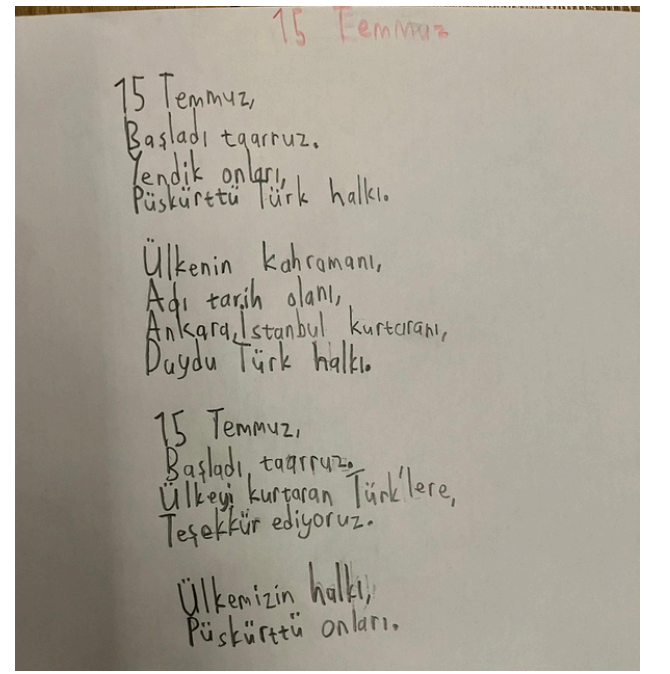 15 Temmuz
15 Temmuz,
Başladı taarruz.
Yendik onları,
Püskürttü Türk halkı.
Ülkenin kahramanı,
Adı tarih olanı,
Ankara, İstanbul kurtaranı,
Duydu Türk halkı.
15 Temmuz,
Başladı taarruz.
Ülkeyi kurtaran Türk'lere,
Teşekkür ediyoruz.
Ülkemizin halkı,
Püskürttü onları.